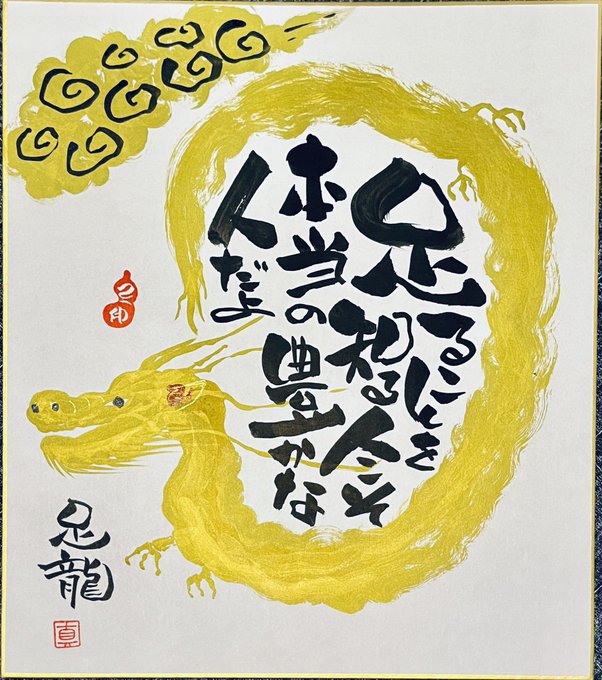 足ることを
知る人こそ
本当の豊かな
人だよ
足龍
真